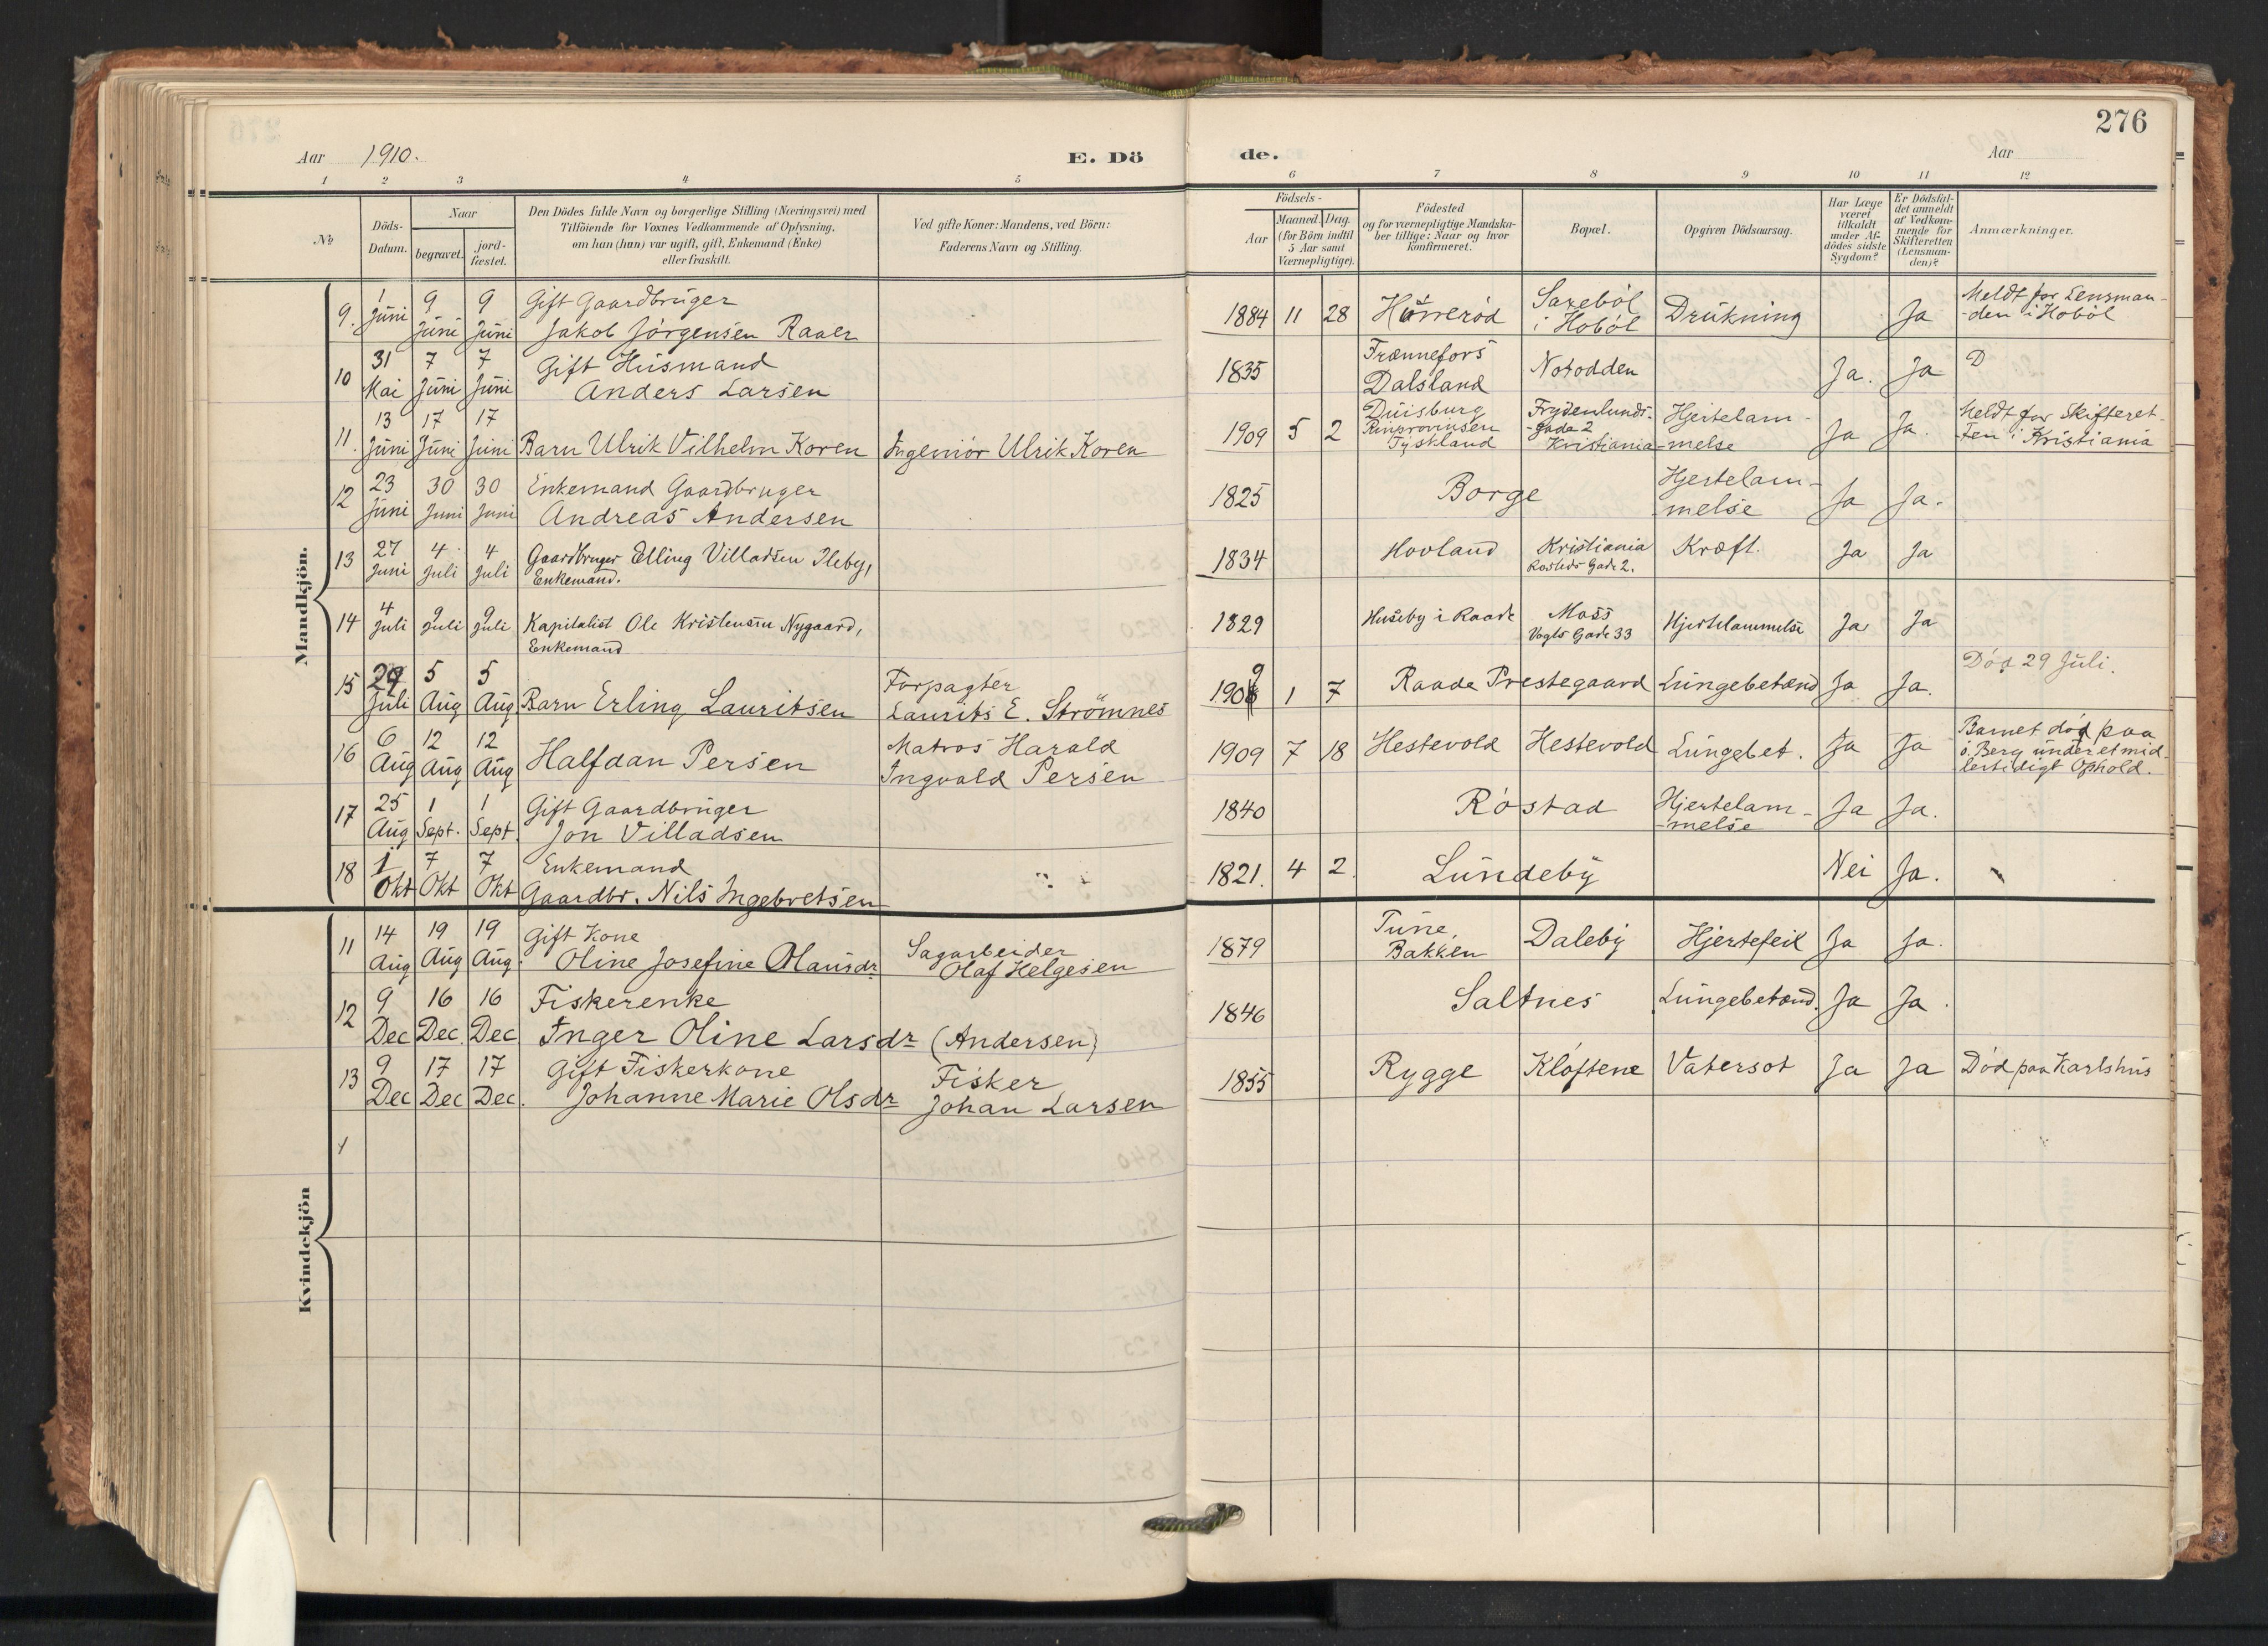 276
Aar 1910.
E. Dö
de.
Aar
1 2 3 4 5 6 7 8 9 10 11 12
№
Döds-
Datum.
Naar
begravet.
jord-
fæstet.
Den Dödes fulde Navn og borgerlige Stilling (Næringsvei) med
Tilföiende for Voxnes Vedkommende af Oplysning,
om han (hun) var ugift, gift, Enkemand (Enke)
eller fraskilt.
Ved gifte Koner: Mandens, ved Börn:
Faderens Navn og Stilling.
Födsels-
Aar
Maaned. Dag.
(for Börn indtil
5 Aar samt
Værnepligtige).
Födested
og for værnepligtige Mandska-
ber tillige: Naar og hvor
konfirmeret.
Bopæl.
Opgiven Dödsaarsag.
Har Læge
været
tilkaldt
under Af-
dödes sidste
Sygdom?
Er Dödsfal-
det anmeldt
af Vedkom-
mende for
Skifteretten
(Lensman-
den)?
Anmærkninger.
Mandkjön.
9. 1 Juni 9 Juni 9 Juni Gift Gaardbruger
Jakob Jörgensen Raaer
1884 11 28 Sareböl
i Hoböl Drukning Ja Meldt for Lensman-
-den i Hoböl
10 31 Mai 7 Juni 7 Juni Gift Husmand
Anders Larsen
1835 Frænnefors
Dalsland Notodden Ja. Ja D
11. 13 Juni 17 Juni 17 Juni Barn Ulrik Vilhelm Koren Ingeniör Ulrik Koren
1909 5 2 Duisburg
Rinprovinsen
Tyskland Frydenlunds-
-gade 2
Kristiania Hjertelam-
-melse Ja Ja. Meldt for Skifteret-
ten i Kristiania
12 23 Juni 30 Juni 30 Juni Enkemand Gaardbruger
Andreas Andersen
1825 Borge Hjertelam-
melse Ja Ja.
13 27 Juni 4 Juli 4 Juli Gaardbruger Elling Villadsen Ileby,
Enkemand.
1834 Hovland Kristiania
Gade 2. Kræft. Ja Ja
14 4 Juli 9 Juli 9 Juli Kapitalist Ole Kristensen Nygaard,
Enkemand
1829 Huseby i Raade Moss
Vogts Gade 33 Hjertelammelse Ja Ja
15 29 Juli 5 Aug 5 Aug Barn Erling Lauritsen Forpagter
Laurits E. Strömnes
1909 1 7 Raade Prestegaard Lungebetænd Ja Ja. Död 29 Juli.
16 6 Aug 12 Aug 12 Aug Halfdan Persen Matros Harald
Ingvald Persen
1909 7 18 Hestevold Hestevold Lungebet. Ja Ja Barnet död paa
ö. Berg under et mid-
lertidigt Ophold.
17 25 Aug 1 Sept. 1 Sept. Gift Gaardbruger
Jon Villadsen
1840 Röstad Hjertelam-
-melse Ja Ja.
18 1 Okt 7 Okt 7 Okt Enkemand
Gaardbr. Nils Ingebretsen
1821. 4 2. Lundeby Nei Ja.
Kvindekjön
11 14 Aug 19 Aug 19 Aug. Gift Kone
Oline Josefine Olausdr Sagarbeider
Olaf Helgesen
1879 Tune,
Bakken Daleby Hjertefeil Ja Ja.
12 9 Dec 16 Dec. 16 Dec Fiskerenke
Inger Oline Larsdr (Andersen)
1846 Saltnes Lungebetænd. Ja Ja.
13 9 Dec 17 Dec 17 Dec. Gift Fiskerkone
Johanne Marie Olsdr Fisker
Johan Larsen
1855 Rygge Klöftene Vatersot Ja Ja Död paa Karlshus